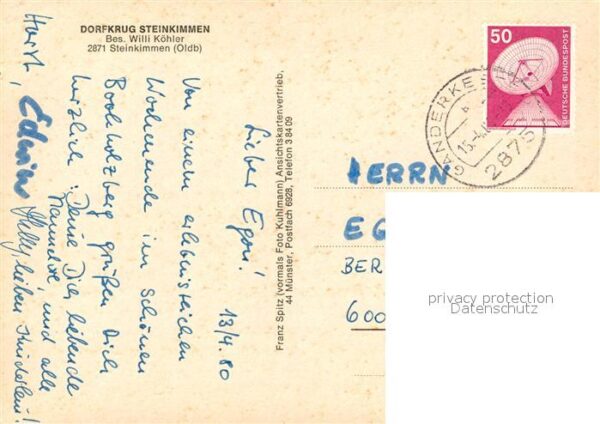 DORFKRUG STEINKIMMEN
Bes. Willi Köhler
2871 Steinkimmen (Oldb)
13/4.80
Lieber Egon!
Von einem erlebnisreichen
Wochenende im schönen
Bookholzberg grüßen Dich
herzlich: Deine Dich liebende
und alle
lieben Kinderlein!
Horst,
Franz Spitz (vormals Foto Kuhlmann) Ansichtskartenvertrieb,
44 Münster, Postfach 6928, Telefon 3 84 09
50
DEUTSCHE BUNDESPOST
GANDERKE
2875
HERRN
EG
BER
600
privacy protection
Datenschutz